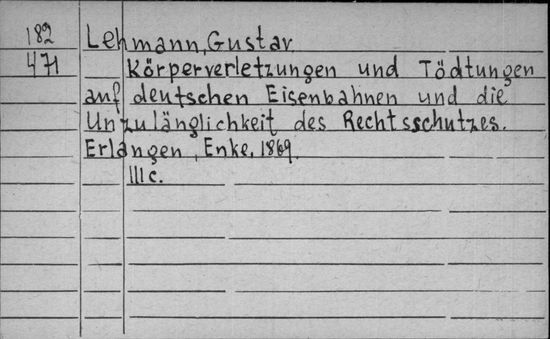 182 Lehmann, Gustav.
471 Körperverletzungen und Tödtungen
auf deutschen Eisenbahnen und die
Unzulänglichkeit des Rechtsschutzes.
Erlangen, Enke, 1869.
IIIc.